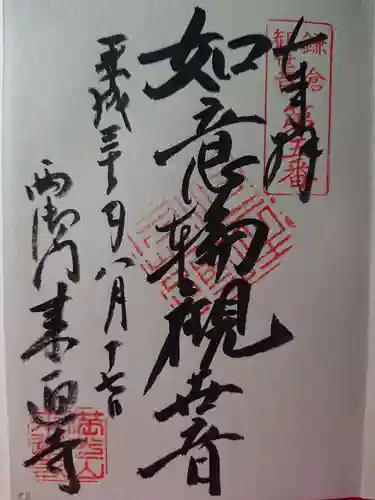 鎌倉
観世音
第五番
奉拝
如意輪觀世音
平成三十年八月十七日
西御門 来迎寺